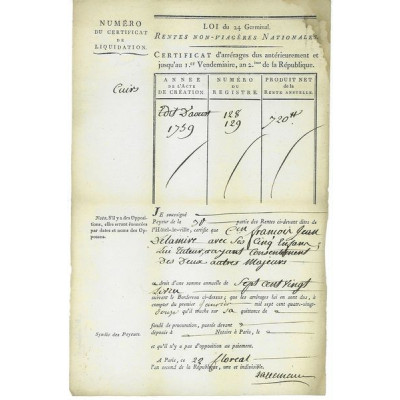 NUMÉRO
DU CERTIFICAT
DE
LIQUIDATION.
Cuirs
LOI du 24 Germinal.
RENTES NON-VIAGÈRES NATIONALES
CERTIFICAT d'arrérages dus antérieurement et
jusqu'au 1.er Vendemiaire, an 2.me de la République.
ANNÉE
DE L'ACTE
DE CRÉATION.
NUMÉRO
DU
REGISTRE.
PRODUIT NET
DE LA
RENTE ANNUELLE.
Edit D'aoust
1759
128
129
720
JE soussigné
Payeur de la 38 partie des Rentes ci-devant dites de
l'Hôtel-de-ville, certifie que Cen françois Jean
Delamire avec ses Cinq Enfans
Lui Tuteur ayant Consentement
des deux autres Majeurs
Nota. S'il y a des Oppositions, elles seront énoncées
par dates et noms des Opposans.
a droit d'une somme annuelle de Sept cent Vingt
Livres
suivant le Bordereau ci-dessus; que les arrérages lui en sont dus, à
compter du premier Janvier mil sept cent quatre-vingt-
douze qu'il touche sur sa quittance de
fondé de procuration, passée devant
déposée à Notaire à Paris, le
Syndic des Payeurs.
et qu'il n'y a pas d'opposition au paiement.
A Paris, ce 22 floreal
l'an second de la République, une et indivisible.